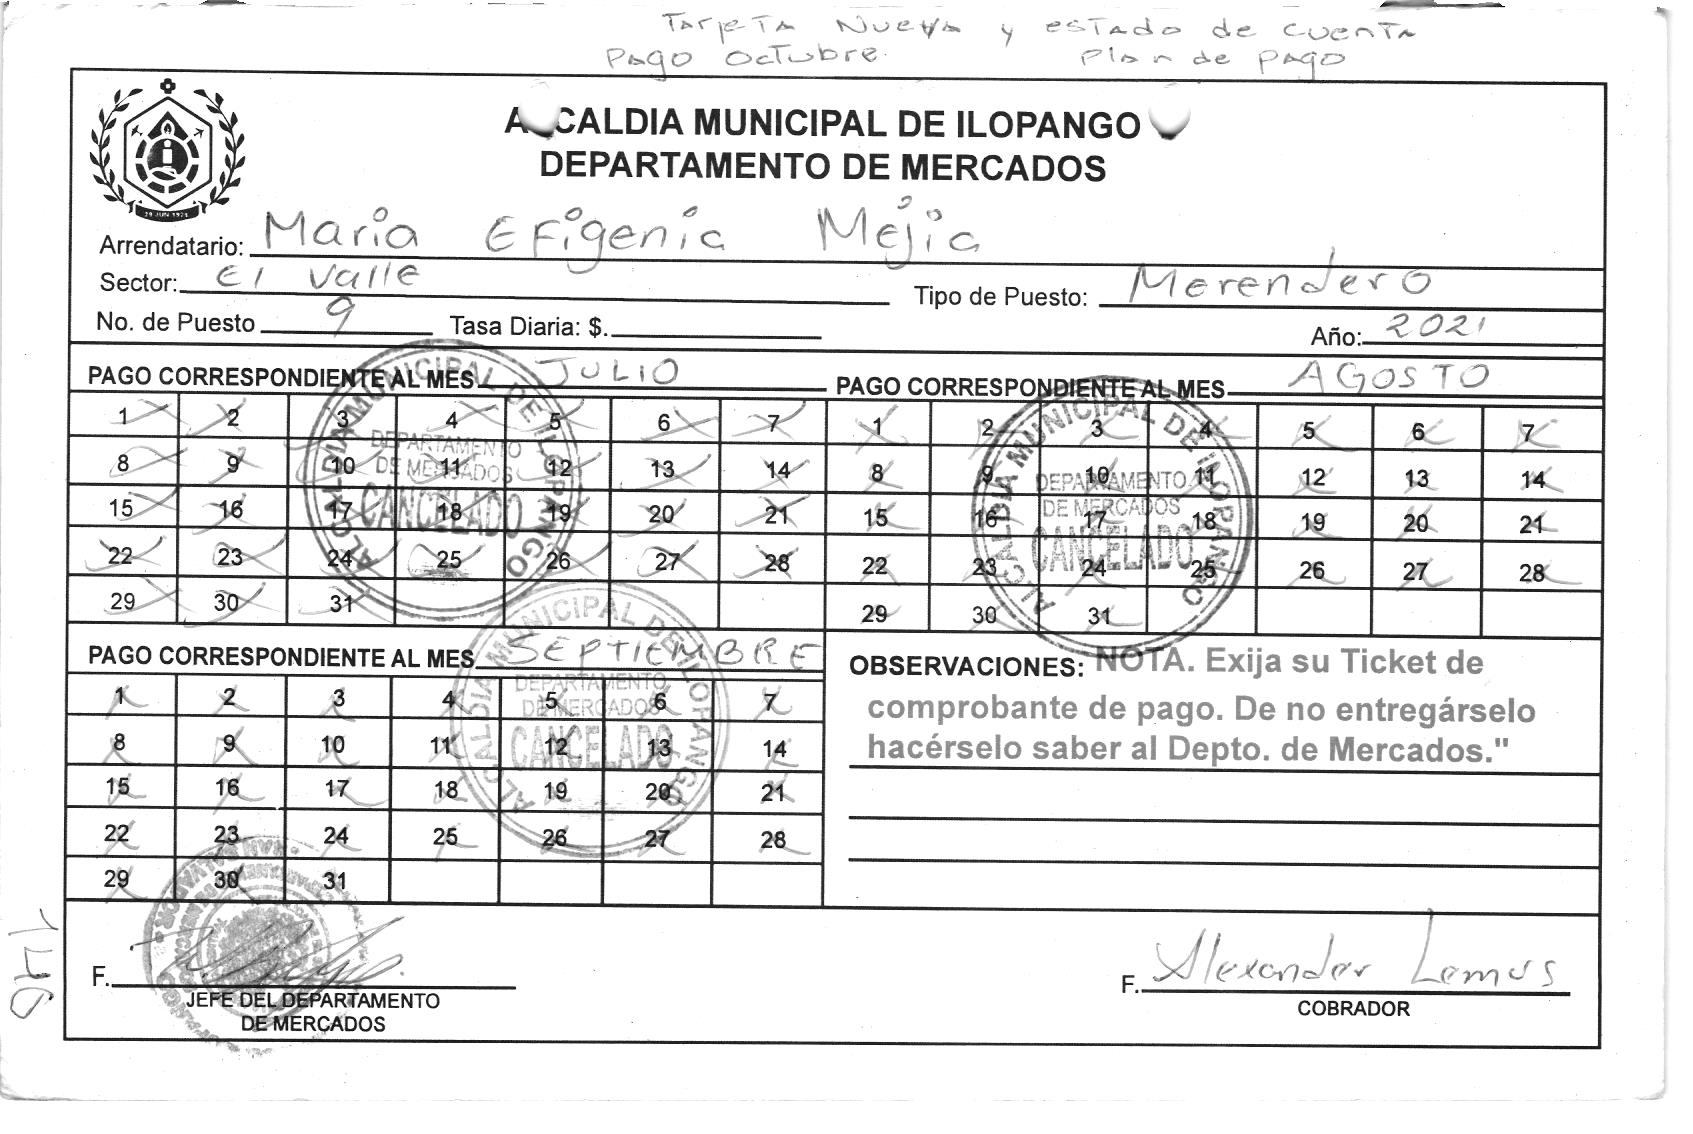 Tarjeta Nueva y estado de cuenta
Pago Octubre. Plan de pago
ALCALDIA MUNICIPAL DE ILOPANGO
DEPARTAMENTO DE MERCADOS
29 JUN 1971
Arrendatario: Maria Efigenia Mejia
Sector: El Valle
Tipo de Puesto: Merendero
No. de Puesto 9 Tasa Diaria: $.
Año: 2021
PAGO CORRESPONDIENTE AL MES JULIO
1 2 3 4 5 6 7
8 9 10 11 12 13 14
15 16 17 18 19 20 21
22 23 24 25 26 27 28
29 30 31
ALCALDIA MUNICIPAL DE ILOPANGO
DEPARTAMENTO
DE MERCADOS
CANCELADO
PAGO CORRESPONDIENTE AL MES AGOSTO
1 2 3 4 5 6 7
8 9 10 11 12 13 14
15 16 17 18 19 20 21
22 23 24 25 26 27 28
29 30 31
ALCALDIA MUNICIPAL DE ILOPANGO
DEPARTAMENTO
DE MERCADOS
CANCELADO
PAGO CORRESPONDIENTE AL MES SEPTIEMBRE
1 2 3 4 5 6 7
8 9 10 11 12 13 14
15 16 17 18 19 20 21
22 23 24 25 26 27 28
29 30 31
ALCALDIA MUNICIPAL DE ILOPANGO
DEPARTAMENTO
DE MERCADOS
CANCELADO
OBSERVACIONES: NOTA. Exija su Ticket de
comprobante de pago. De no entregárselo
hacérselo saber al Depto. de Mercados."
F.
JEFE DEL DEPARTAMENTO
DE MERCADOS
F. Alexander Lemus
COBRADOR